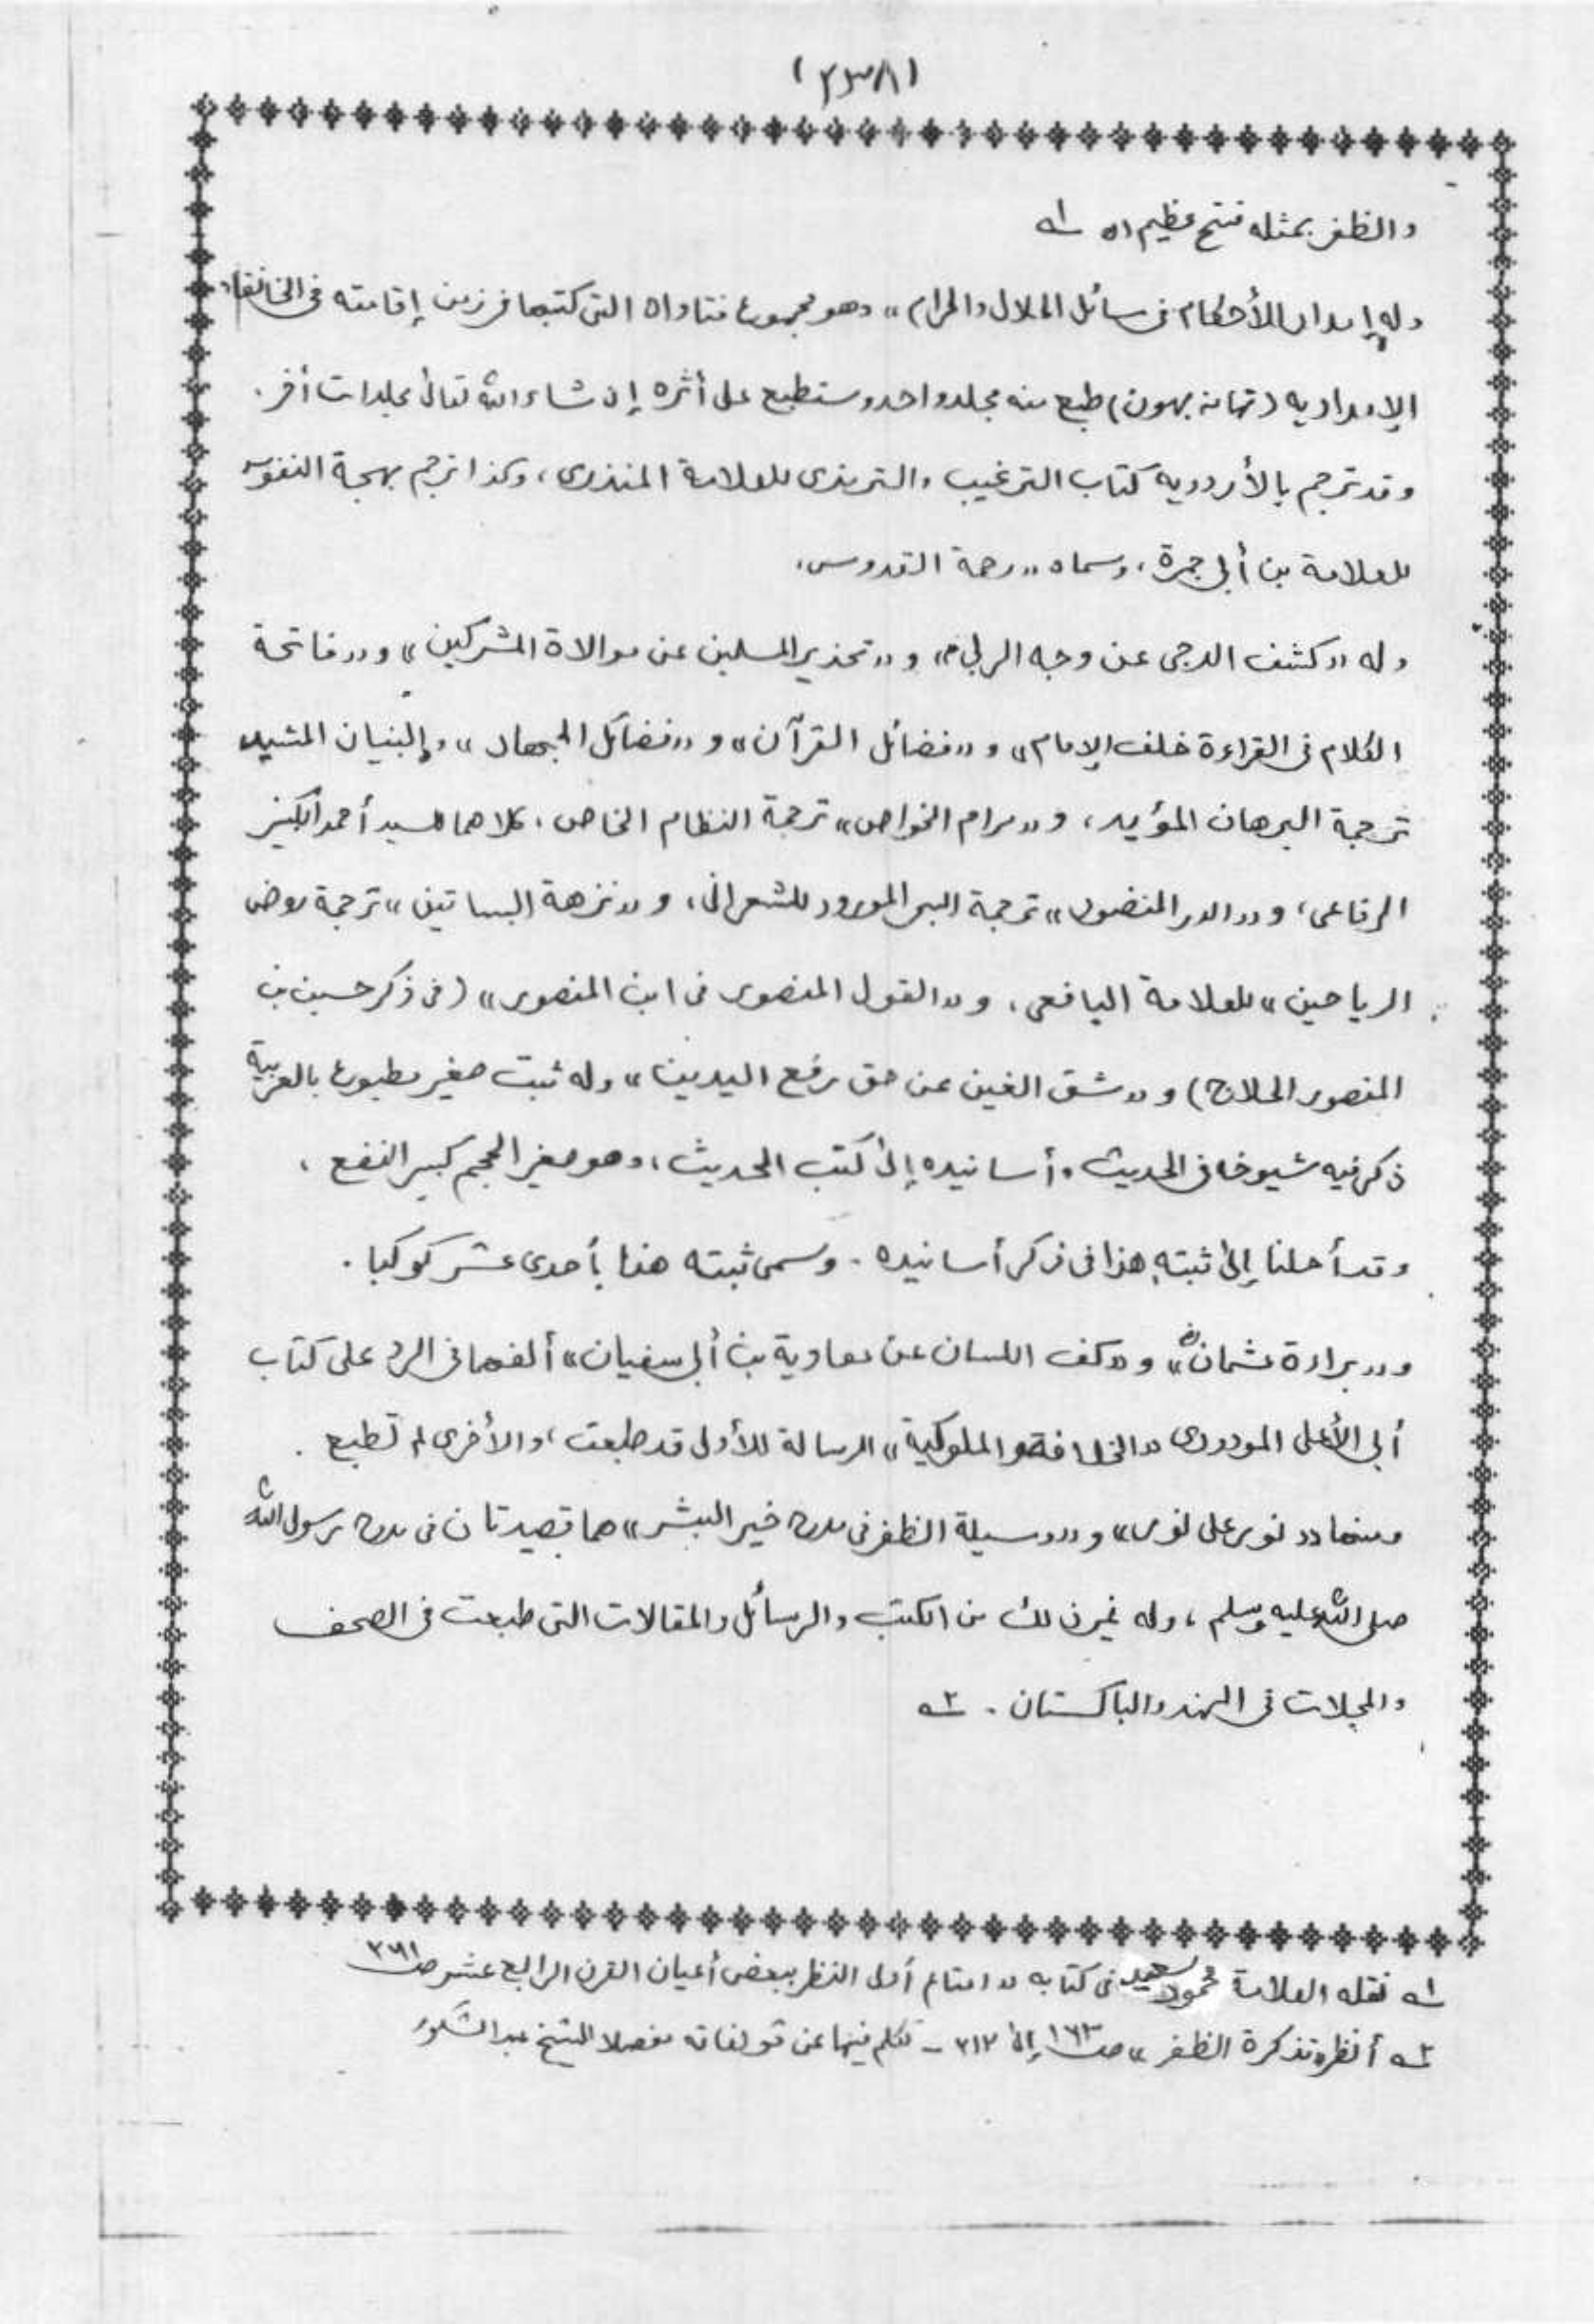 (٣٣٨)
والظفر بمثله فتح عظيم اه ١ـه
وله إمداد الأحكام فى مسائل الحلال والحرام» وهو مجموع فتاواه التى كتبها فى زمن إقامته فى الخانقاه
الإمداديه (تهانه بهون) طبع منه مجلد واحد وستطبع على أثره إن شاء الله تعالى مجلدات أخر .
وقد ترجم بالأردويه كتاب الترغيب والترمذى للعلامة المنذرى، وكذا ترجم بهجة النفوس
للعلامة بن أبى جمرة، وسماه «رحمة القدوس،
وله «كشف الدجى عن وجه الربا» و«تحذير المسلمين عن موالاة المشركين» و«فاتحة
الكلام فى القراءة خلف الإمام» و«فضائل القرآن» و«فضائل الجهاد»، والبنيان المشيد
ترجمة البرهان المؤيد، و«مرام الخواص» ترجمة النظام الخاص، كلاهما للسيد أحمد الكبير
الرفاعى، و«الدر المنضود» ترجمة البحر المورود للشعرانى، و«نزهة البساتين» ترجمة روض
الرياحين» للعلامة اليافعى، و«القول المنصور فى ابن المنصور» (فى ذكر حسين بن
المنصور الحلاج) و«شق الغين عن حق رفع اليدين» وله ثبت صغير مطبوع بالعربية
ذكر فيه شيوخا فى الحديث وأسانيده إلى كتب الحديث، وهو صغير الحجم كبير النفع ،
وقد أحلنا إلى ثبته هذا فى ذكر أسانيده . وسمى ثبته هذا بأحدى عشر كوكبا .
و«براءة عثمان» و«كف اللسان عن معاوية بن أبى سفيان» ألفهما فى الرد على كتاب
أبى الأعلى المودودى «الخلافة والملوكية» الرسالة للأولى قد طبعت، والأخرى لم تطبع .
ومنها «نور على نور» و«وسيلة الظفر فى مدح خير البشر» هما قصيدتان فى مدح رسول الله
صلى الله عليه وسلم ، وله غير ذلك من الكتب والرسائل والمقالات التى طبعت فى الصحف
والمجلات فى الهند والباكستان . ٢ـه
١ـه نقله العلامة محمود سعيد فى كتابه «امتاع أولى النظر ببعض أعيان القرن الرابع عشر صـ
٢ـه أنظر «تذكرة الظفر» صـ ١٦٣ إلى ٢١٢ - تكلم فيها عن مؤلفاته مفصلا الشيخ عبد الشكور